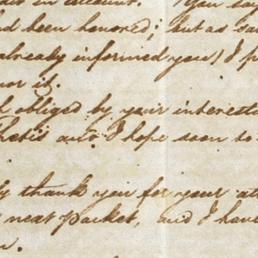 in account. You say
had been honored; but as
already informed you I
for it.
obliged by your
and I hope soon to

thank you for your
next packet, and I have